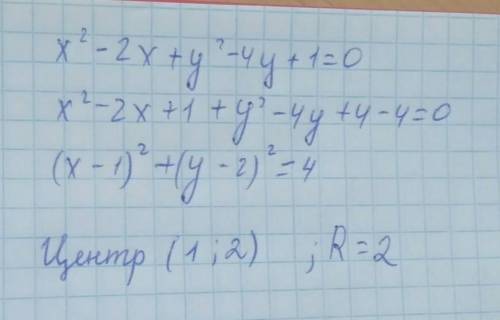 x² - 2x + y² - 4y + 1 = 0
x² - 2x + 1 + y² - 4y + 4 - 4 = 0
(x - 1)² + (y - 2)² = 4
Центр (1 ; 2) ; R = 2